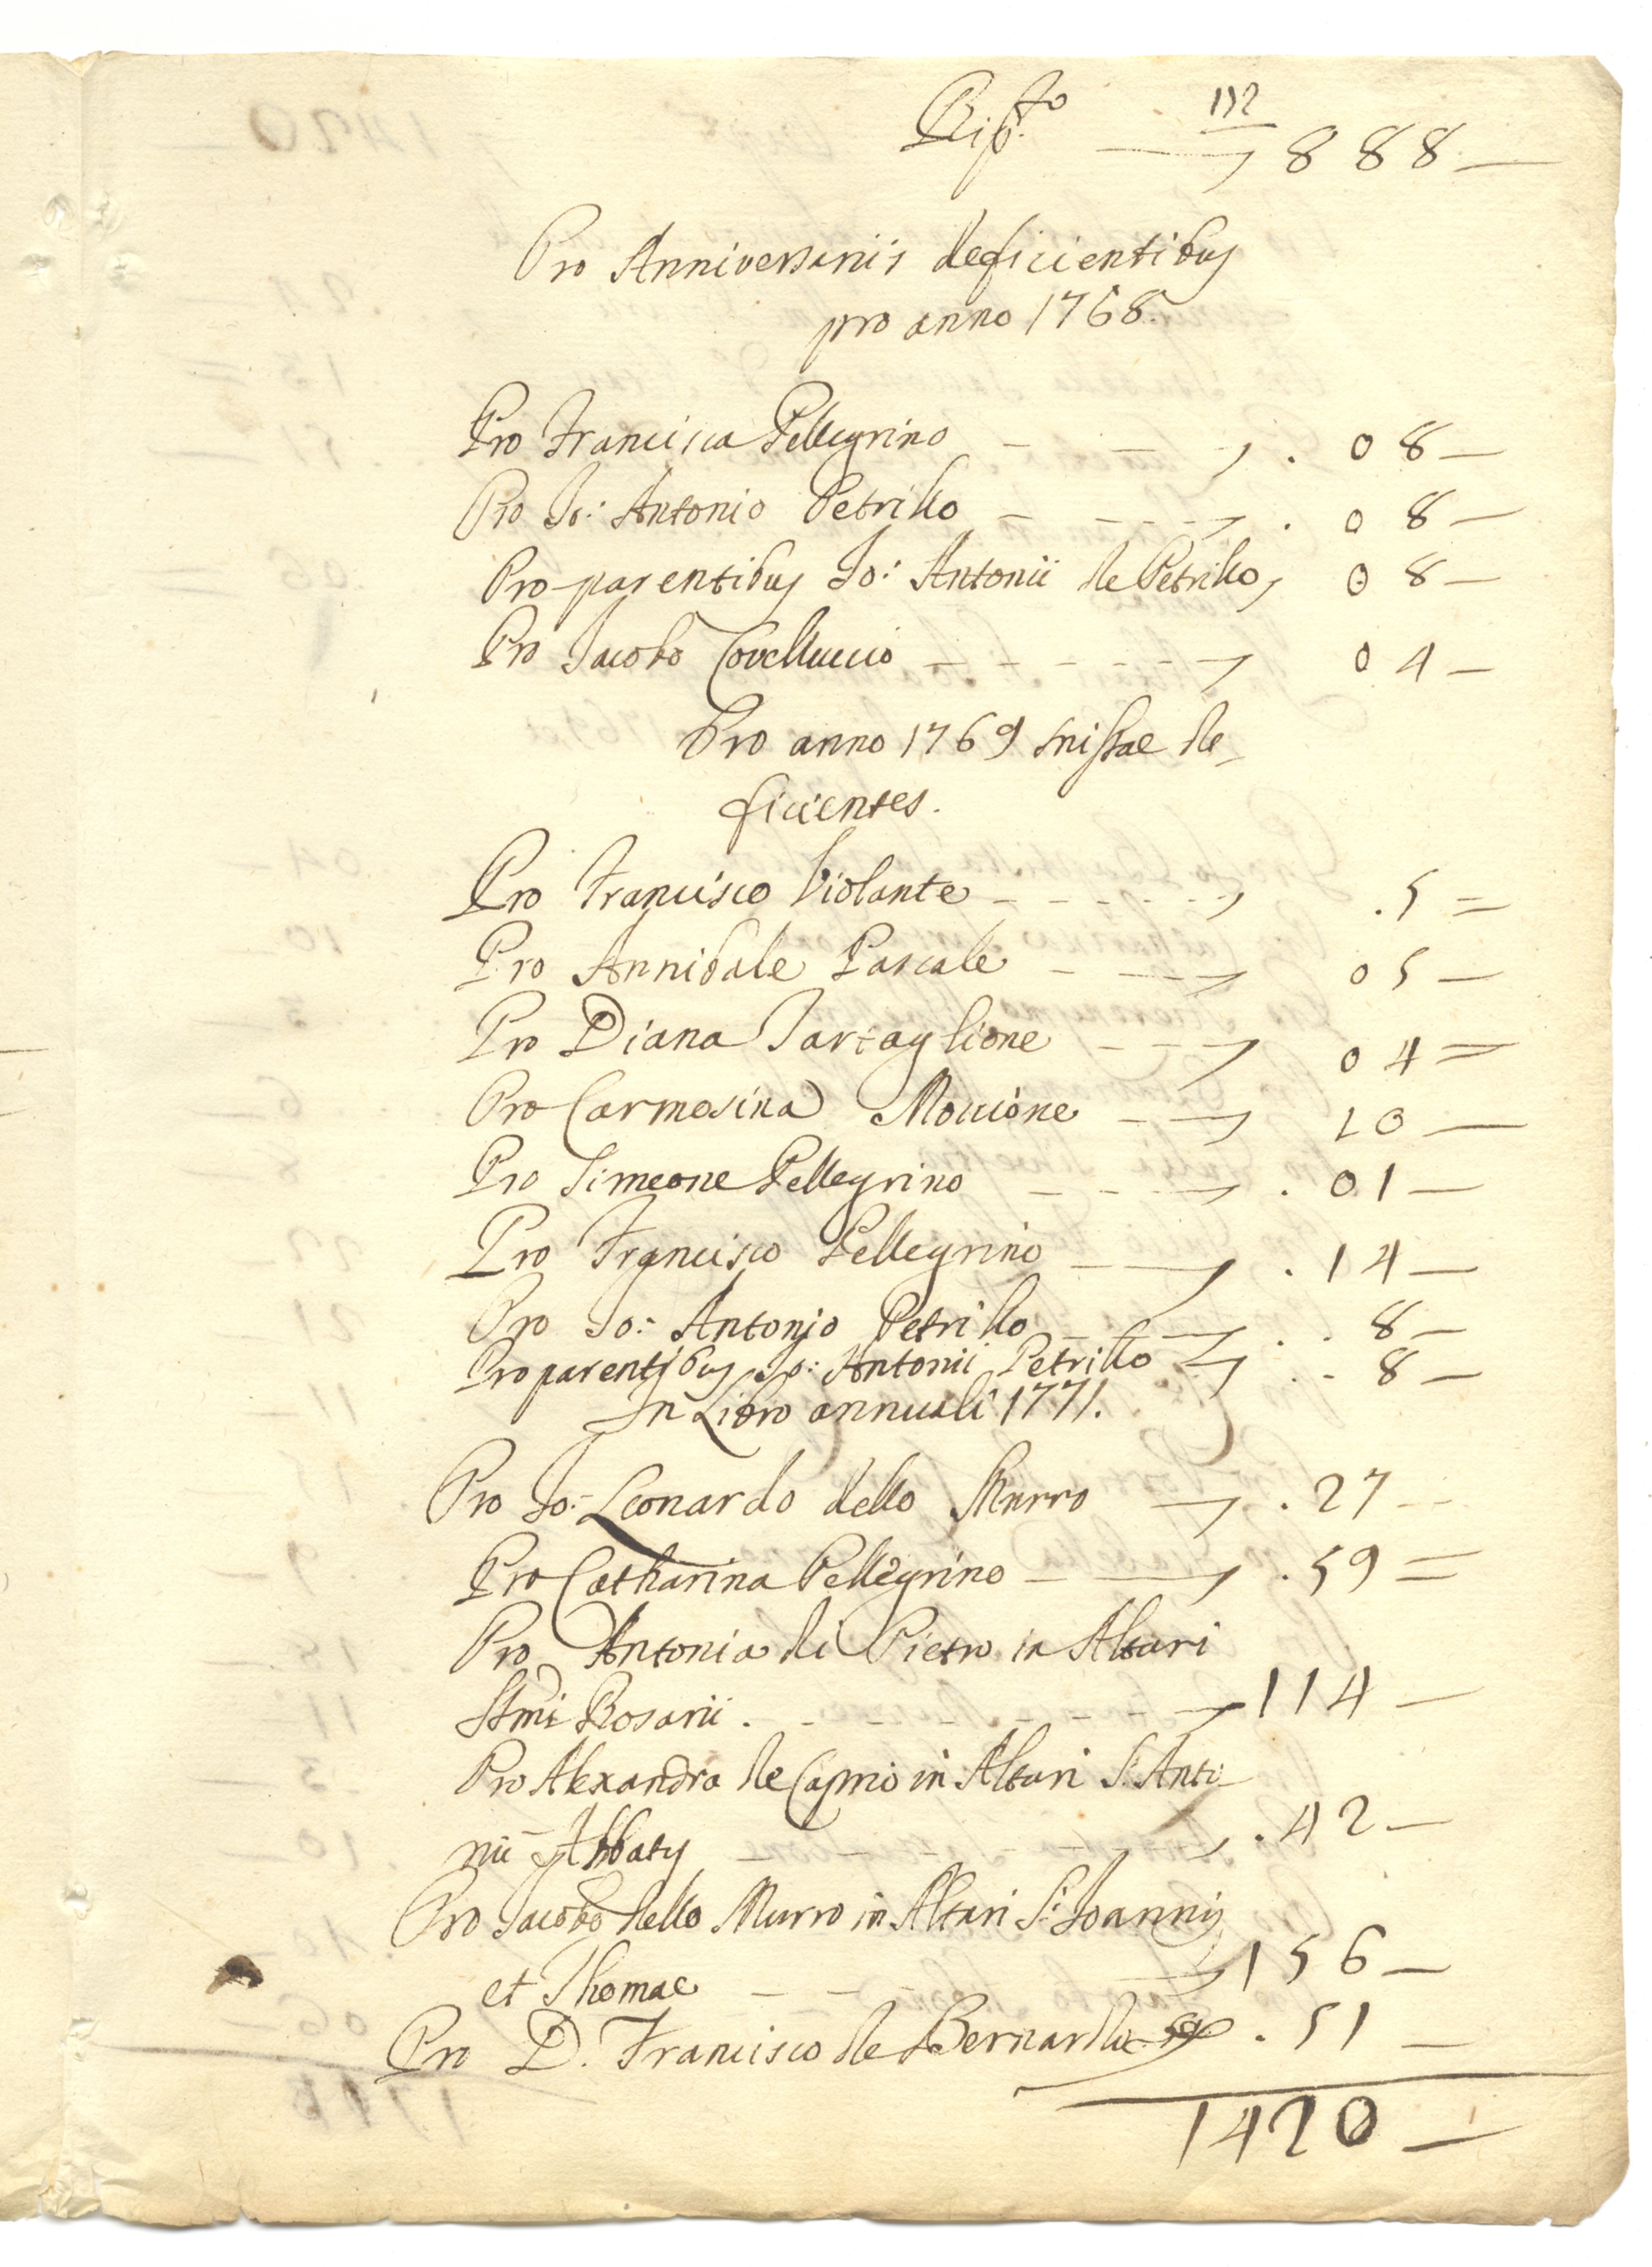 Rip.to — 888 —
Pro Anniversariis deficientibus
pro anno 1768.
Pro Francisca Pellegrino — . 08 —
Pro Jo: Antonio Petrillo — . 08 —
Pro parentibus Jo: Antonii de Petrillo, 08 —
Pro Jacobo Covelluccio — 04 —
Pro anno 1769 missae de,
ficientes.
Pro Francisco Violante — .5 =
Pro Annibale Pascale — 05 —
Pro Diana Tartaglione — 04 =
Pro Carmosina Moccione — 10 —
Pro Simeone Pellegrino — . 01 —
Pro Francisco Pellegrino — . 14 —
Pro Jo: Antonio Petrillo — . . 8 —
Pro parentibus Jo: Antonii Petrillo — . . 8 —
In Libro annuali 1771.
Pro Jo: Leonardo dello Murro — . 27 —
Pro Catharina Pellegrino — . 59 =
Pro Antonia di Pietro in Altari
SSmi Rosarii . — 114 —
Pro Alexandra de Caprio in Altari S. Anto
nii Abbatis — . 42 —
Pro Jacobo dello Murro in Altari S. Joannis
et Thomae — 156 —
Pro D. Francisco de Bernardo . 51 —
1420 —